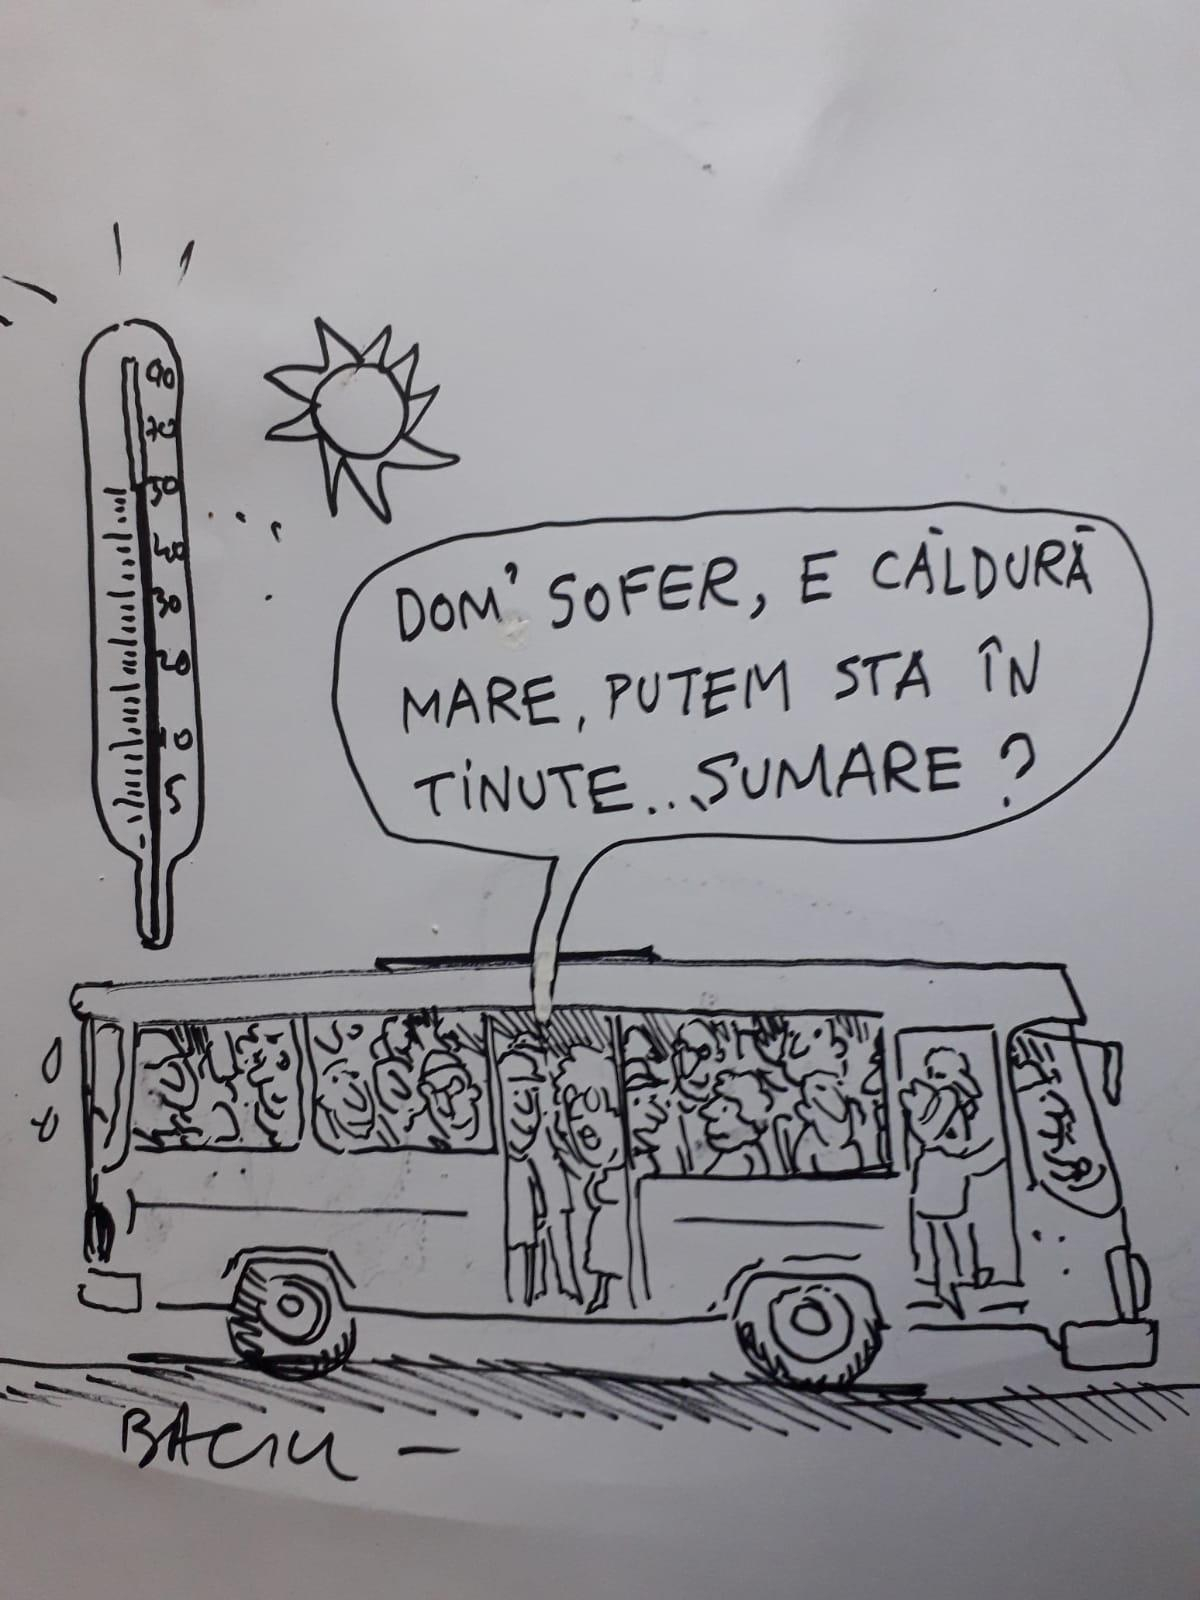 90
70
50
40
30
20
10
5
DOM' SOFER, E CĂLDURĂ
MARE, PUTEM STA ÎN
TINUTE...SUMARE?
BACIU -